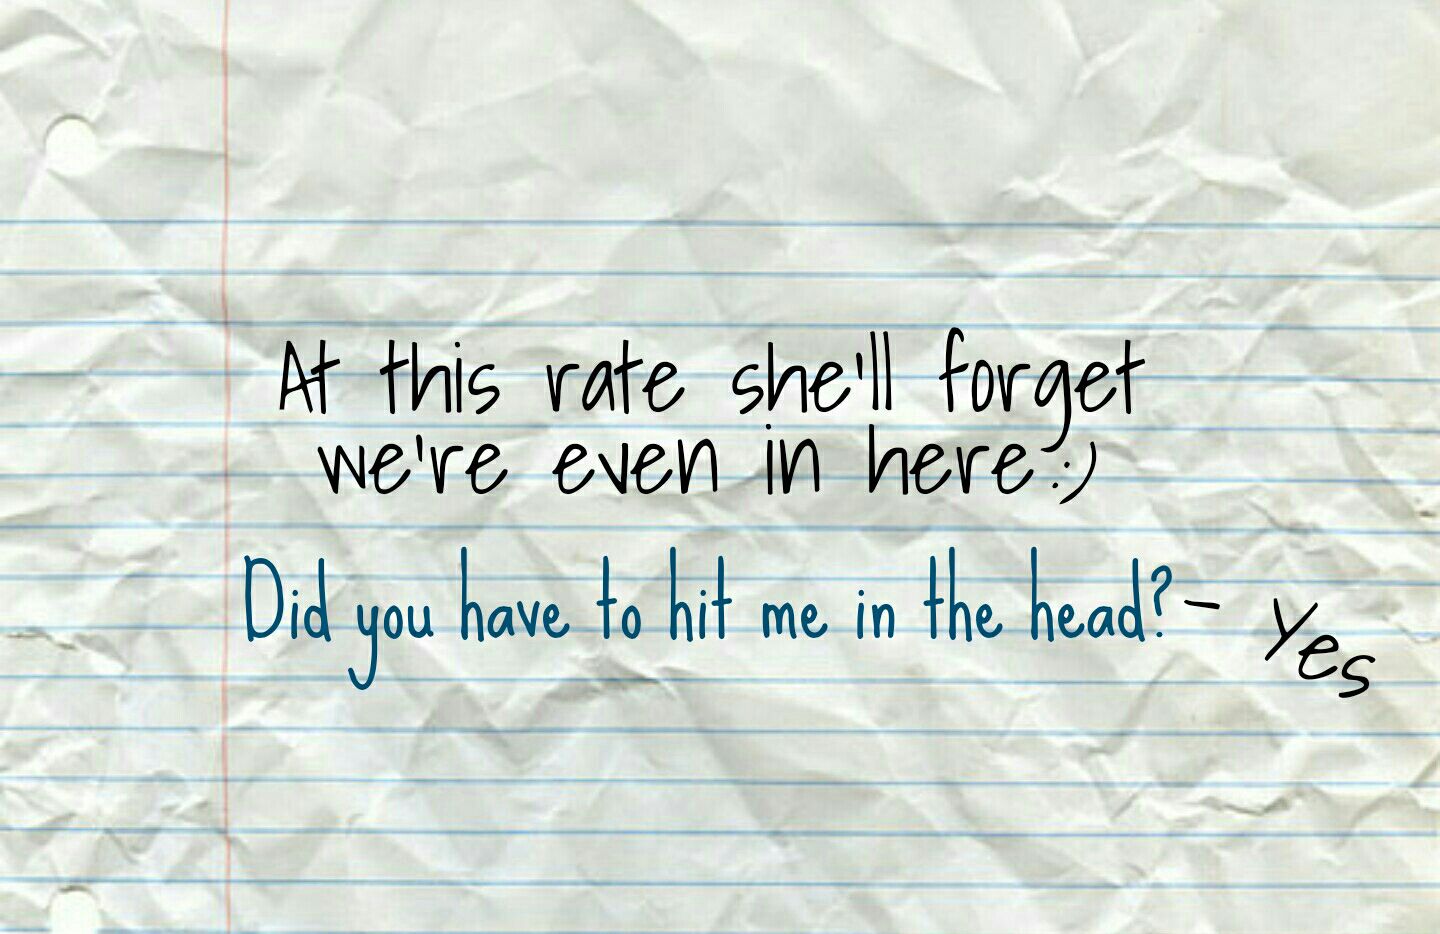 At this rate she'll forget
we're even in here :)
Did you have to hit me in the head? - Yes